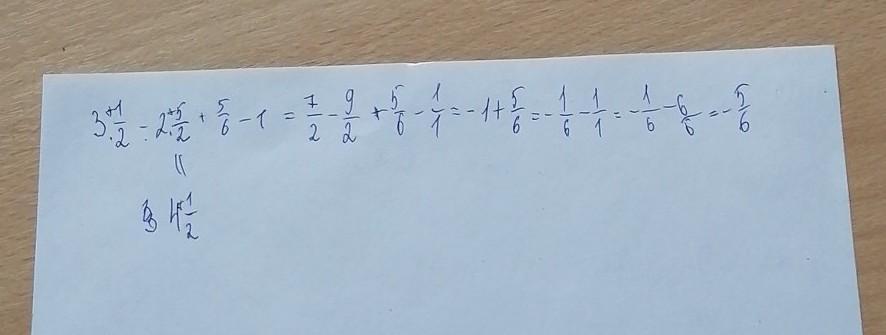 3 1/2 - 2 5/2 + 5/6 - 1 = 7/2 - 9/2 + 5/6 - 1/1 = - 1 + 5/6 = - 1/6 - 1/1 = - 1/6 - 6/6 = - 5/6
=
4 1/2